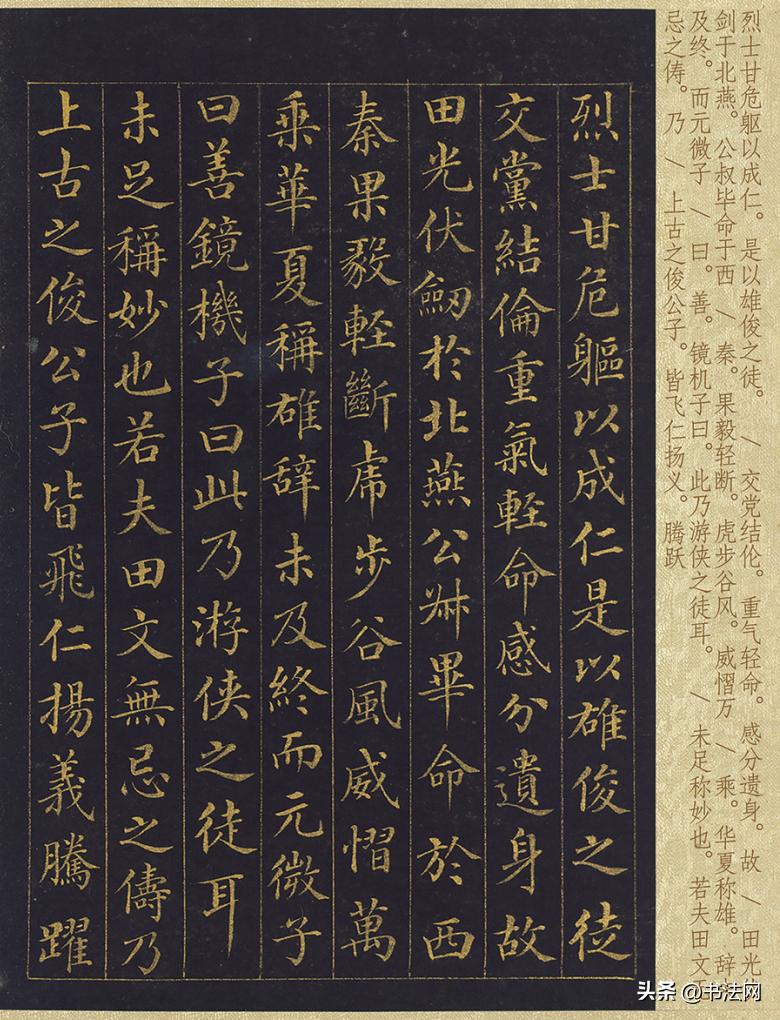 烈士甘危躯以成仁。是以雄俊之徒。 / 交党结伦。重气轻命。感分遗身。故 / 田光
剑于北燕。公叔毕命于西 / 秦。果毅轻断。虎步谷风。威慴万 / 乘。华夏称雄。辞
及终。而元微子 / 曰。善。镜机子曰。此乃游侠之徒耳。 / 未足称妙也。若夫田文
忌之俦。乃 / 上古之俊公子。皆飞仁扬义。腾跃
烈士甘危軀以成仁是以雄俊之徒
交黨結倫重氣輕命感分遺身故
田光伏劒於北燕公叔畢命於西
秦果毅輕斷虎步谷風威慴萬
乘華夏稱雄辞未及終而元微子
曰善鏡機子曰此乃游俠之徒耳
未足稱妙也若夫田文無忌之儔乃
上古之俊公子皆飛仁揚義騰躍
头条 @书法网